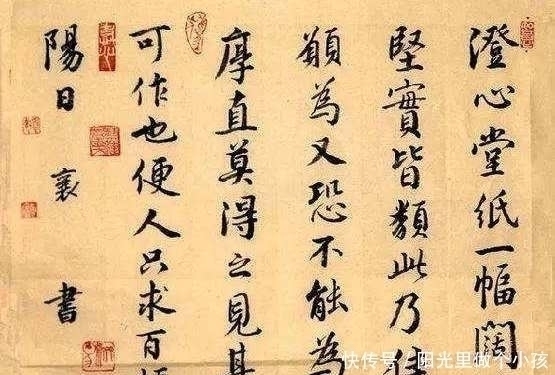 澄心堂紙一幅闊
堅實皆類此乃
願為又恐不能為
厚直莫得之見其
可作也便人只求百
陽日襄書
快传号/阳光里做个小孩